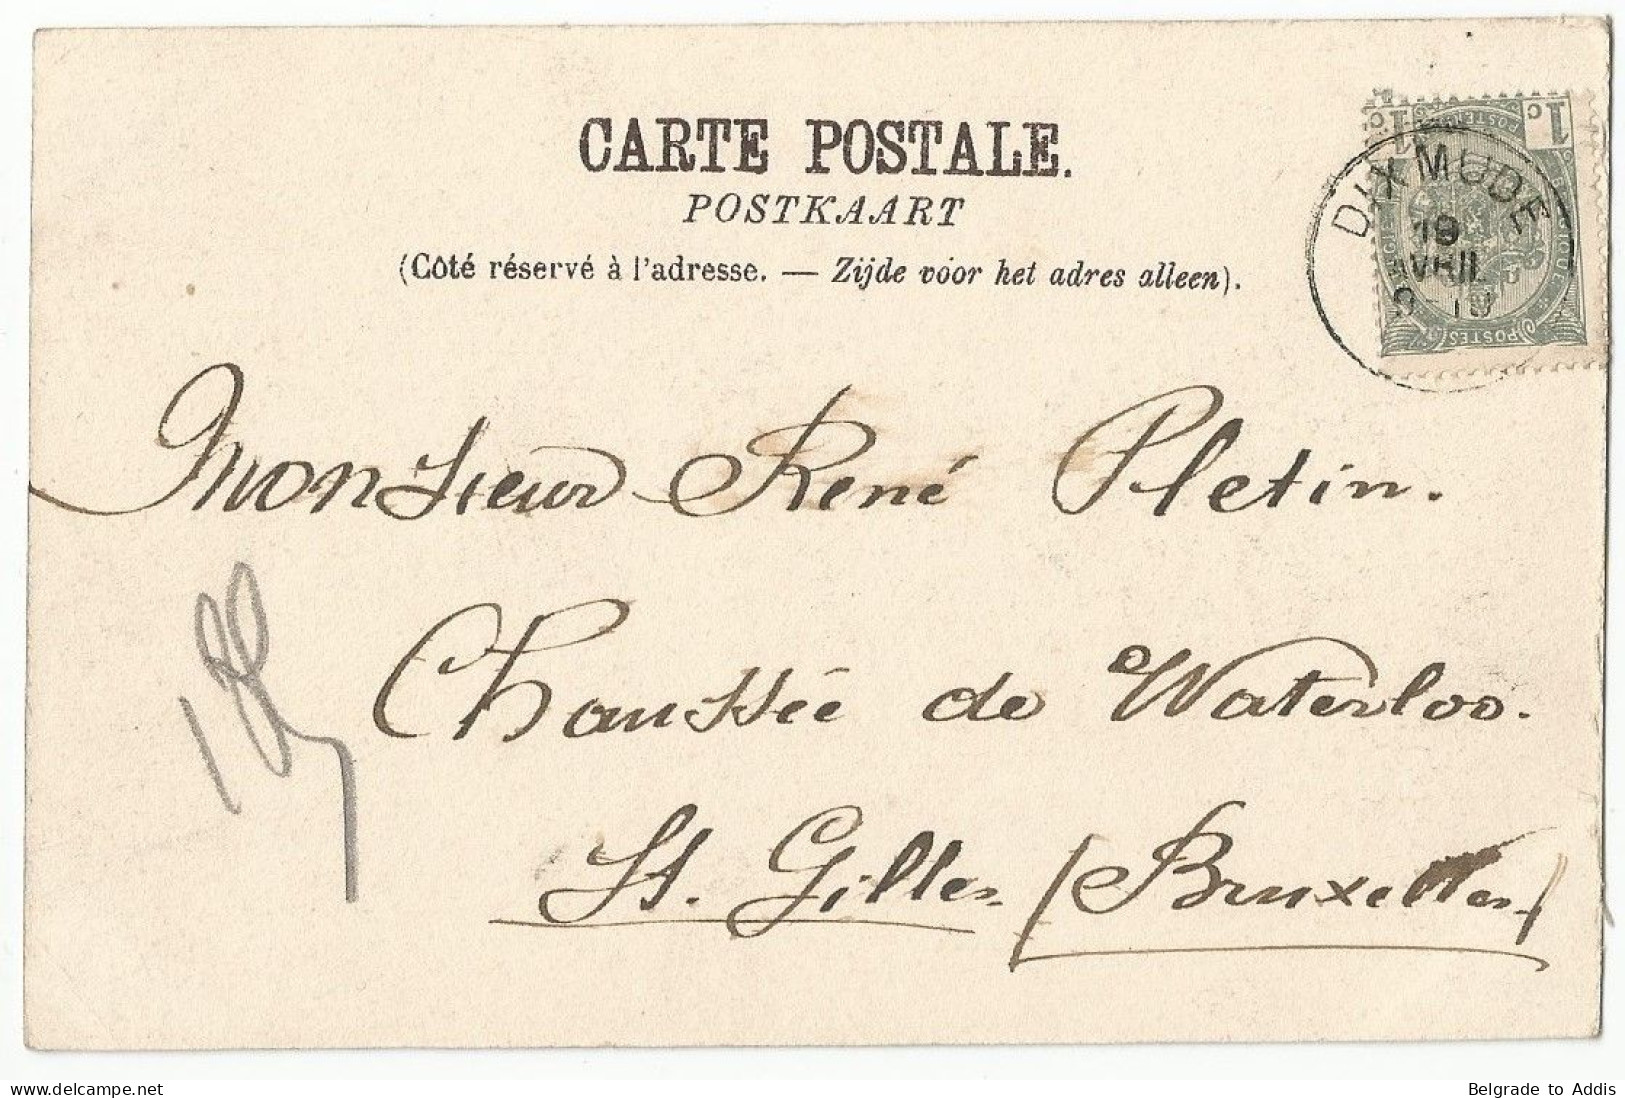 CARTE POSTALE.
POSTKAART
(Côté réservé à l'adresse. — Zijde voor het adres alleen).
DIXMUDE
19
AVRIL
9-10
Monsieur René Pletin.
Chaussée de Waterloo.
St. Gilles (Bruxelles)
delcampe.net
Belgrade to Addis